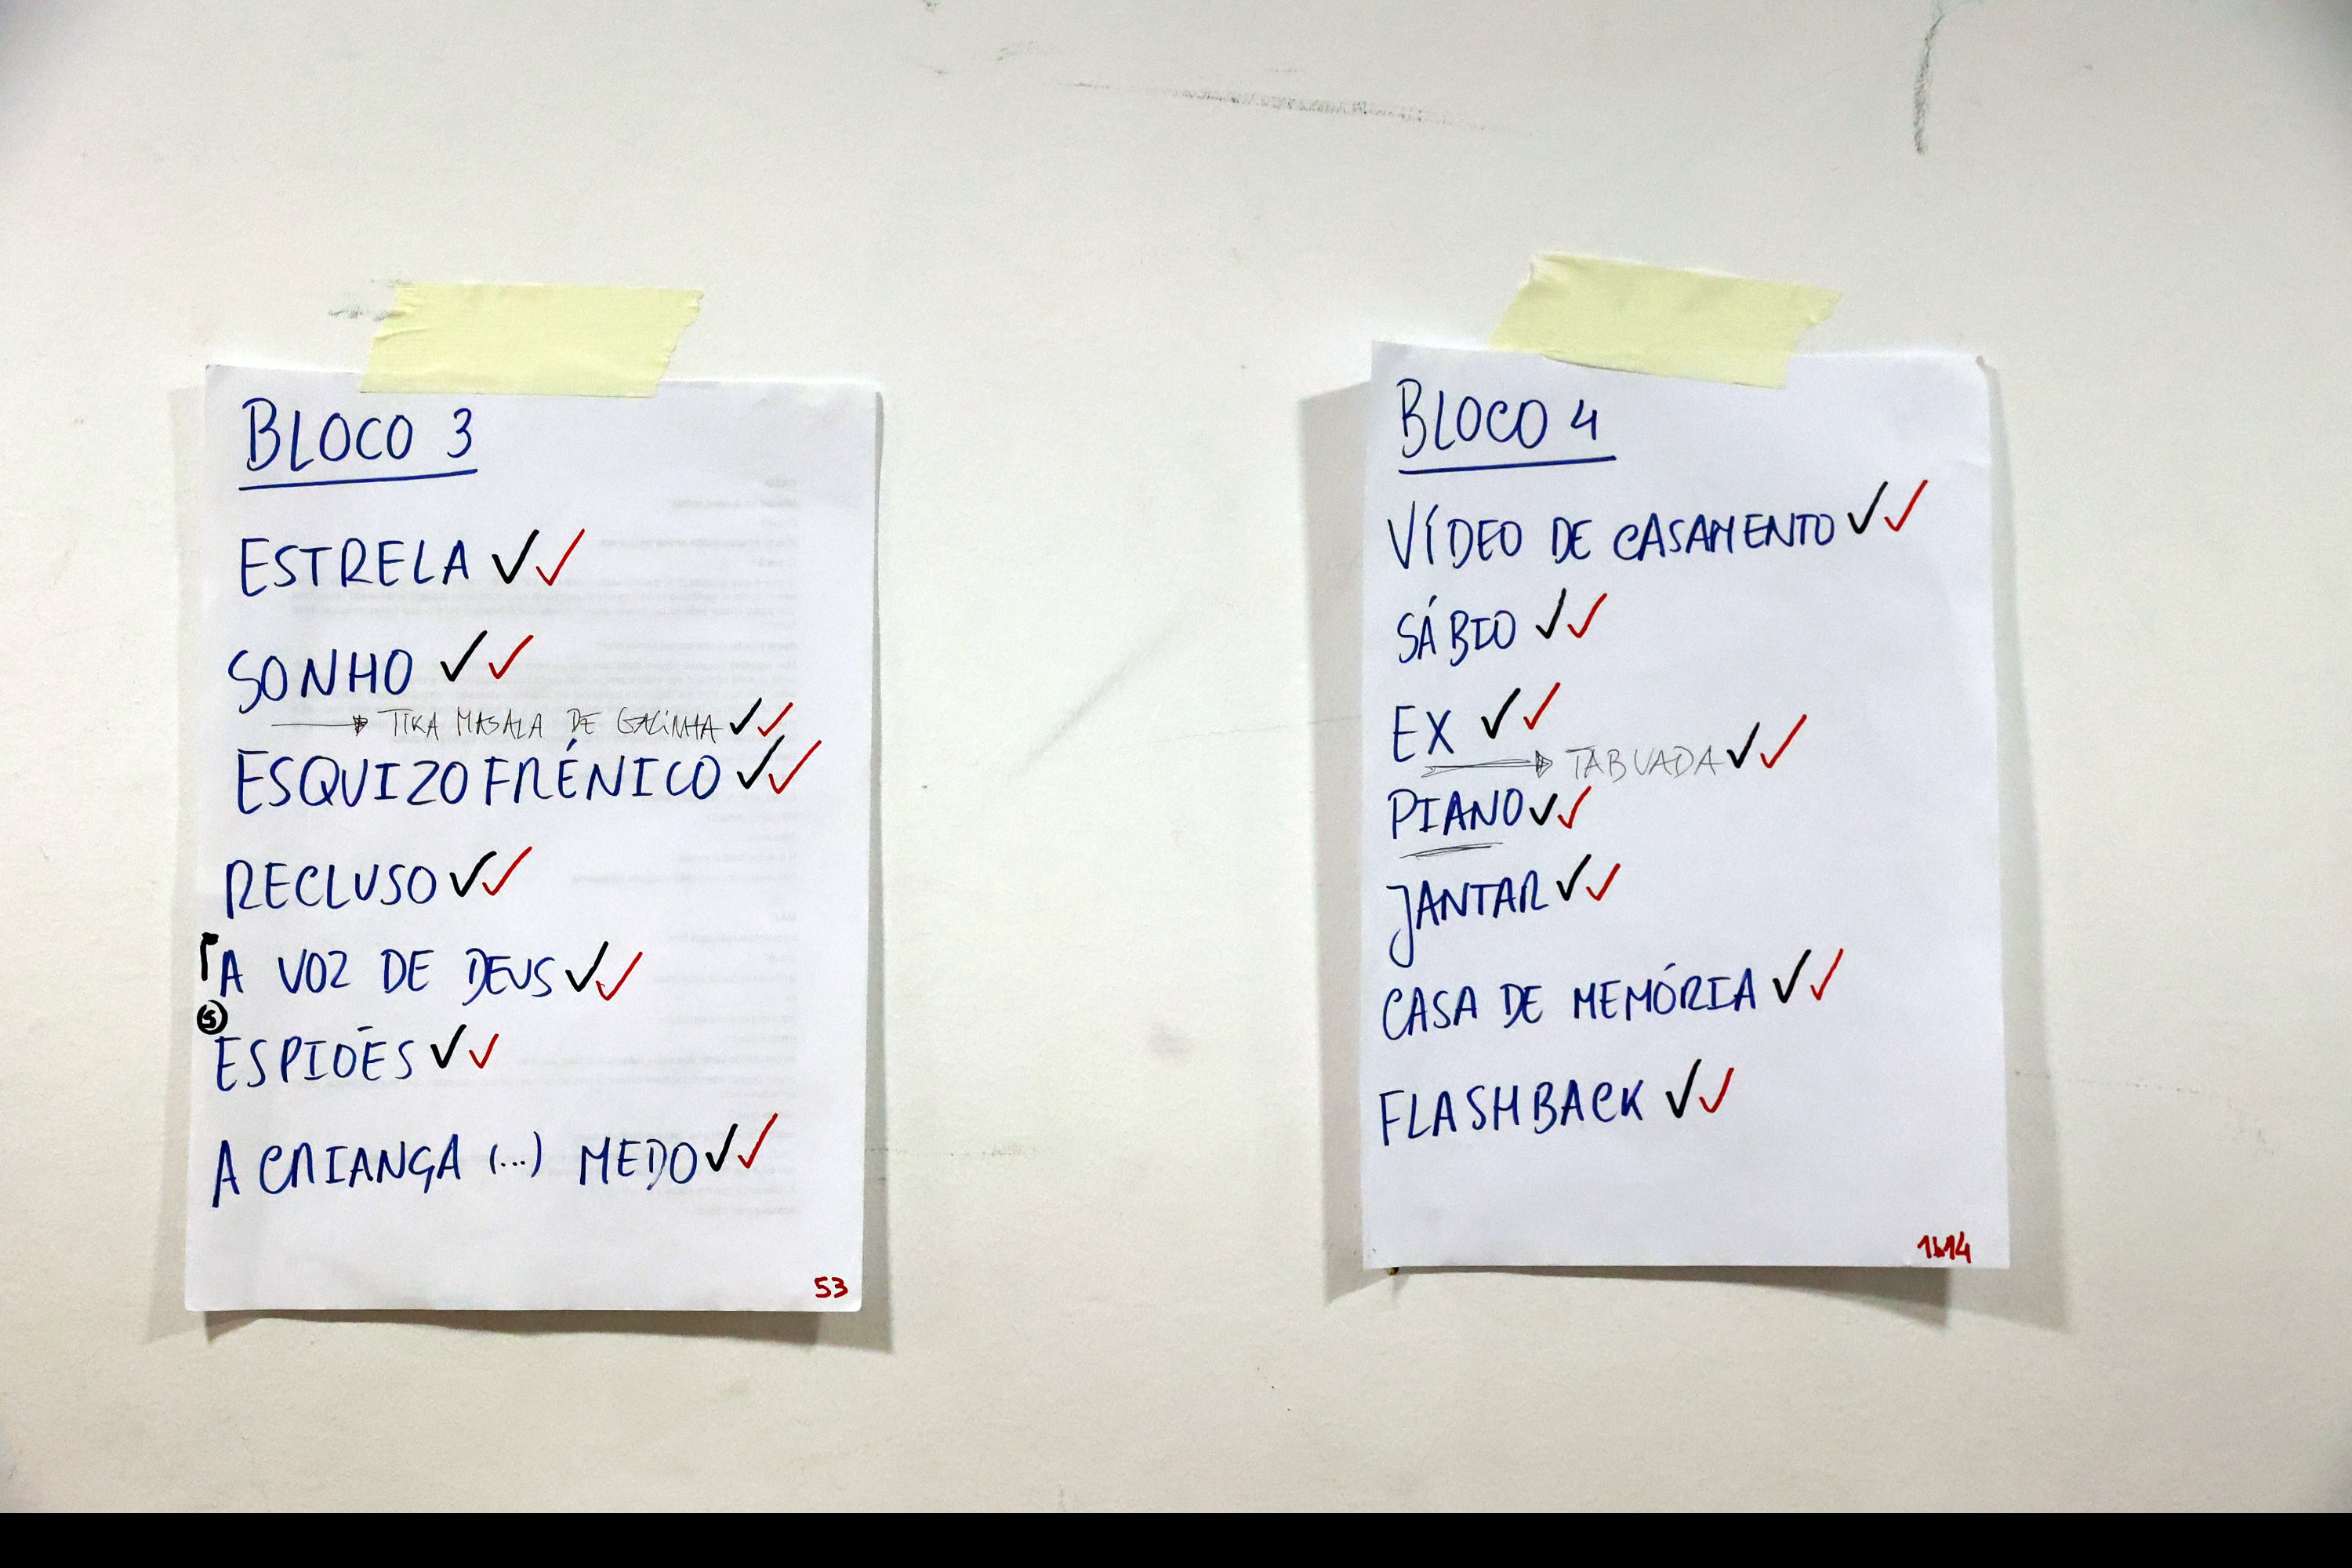 BLOCO 3
ESTRELA ✓✓
SONHO ✓✓
→ TIKA MASALA DE GALINHA ✓✓
ESQUIZOFRÉNICO ✓✓
RECLUSO ✓✓
A VOZ DE DEUS ✓✓
5
ESPIÕES ✓✓
A CRIANÇA (...) MEDO ✓✓
53
BLOCO 4
VÍDEO DE CASAMENTO ✓✓
SÁBIO ✓✓
EX ✓✓
→ TABUADA ✓✓
PIANO ✓✓
JANTAR ✓✓
CASA DE MEMÓRIA ✓✓
FLASHBACK ✓✓